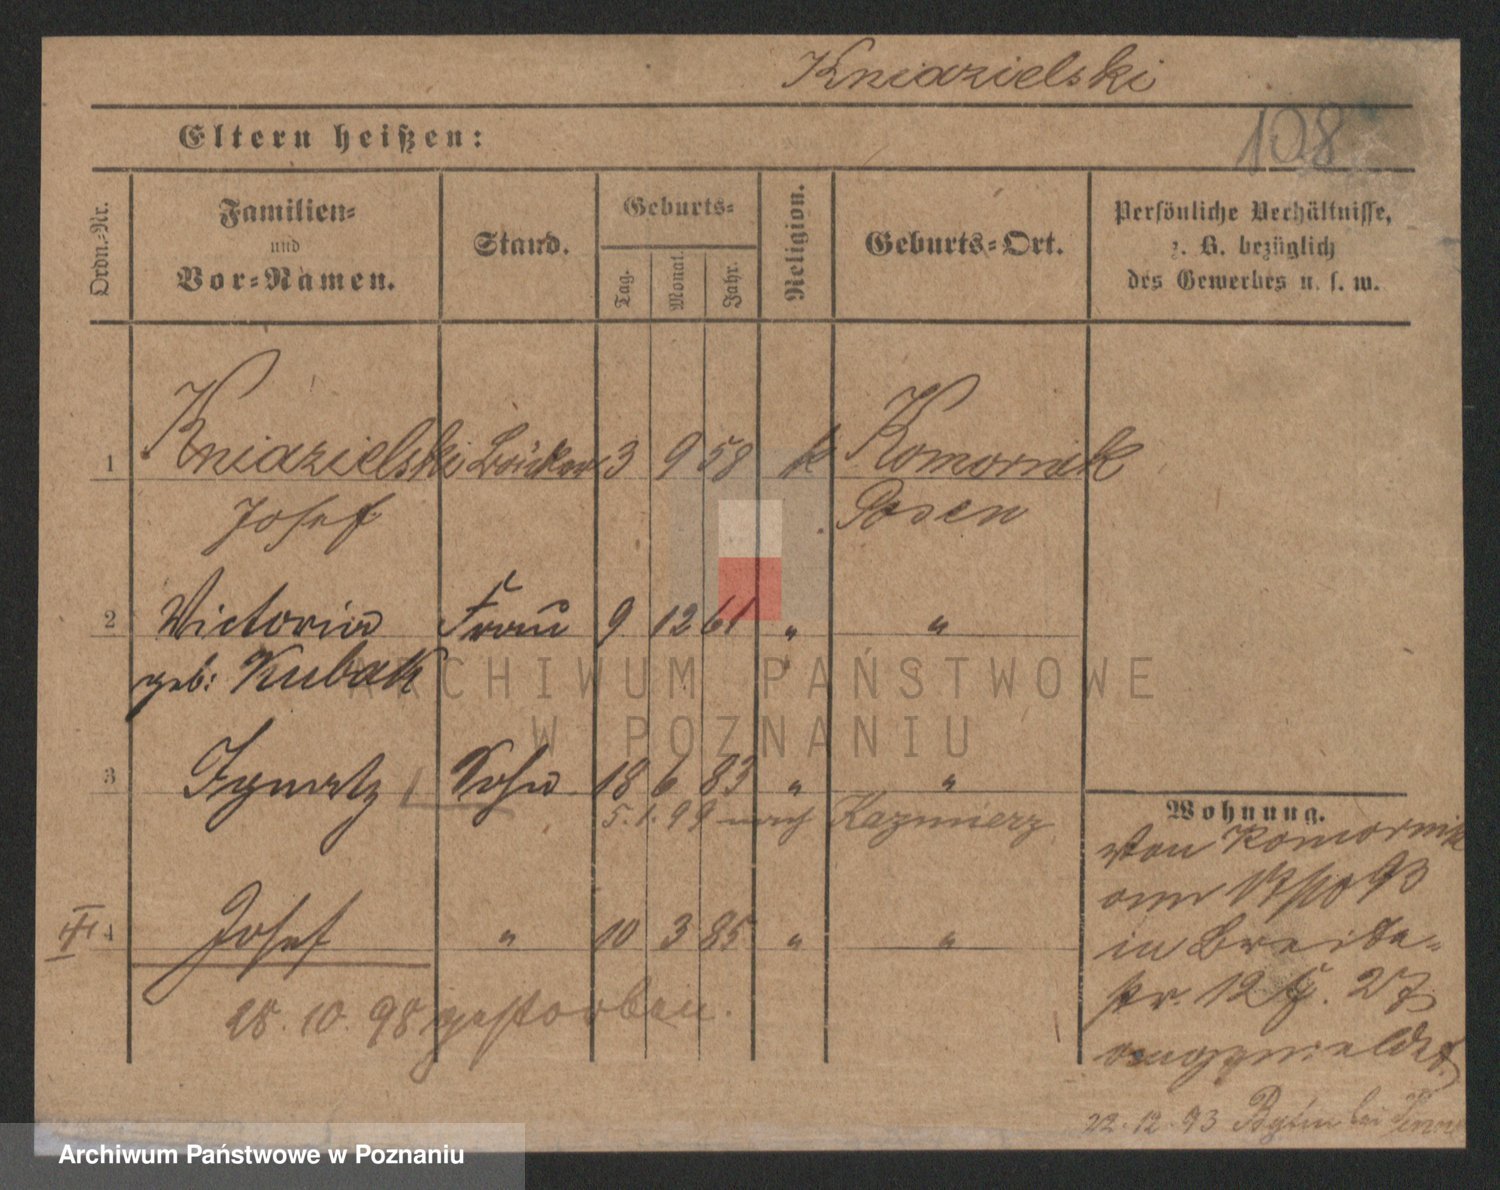 Kniazielski
108
Eltern heißen:
Ordn.-Nr.
Familien-
und
Vor-Namen.
Stand.
Geburts-
Tag.
Monat.
Jahr.
Religion.
Geburts-Ort.
Persönliche Verhältnisse,
z. B. bezüglich
des Gewerbes u. s. w.
1 Kniazielski Bäcker 3 9 58 k Komornik
Josef Posen
2 Victoria Frau 9 12 61 " "
geb: Kubak
ARCHIWUM PAŃSTWOWE
W POZNANIU
3 Ignatz Sohn 18 6 83 " "
5.1.99 nach Kazmierz
4 Josef " 10 3 85 " "
28.10.98 gestorben.
Wohnung.
Von Komornik
am 17/10 93
in Breite-
str. 12
27
angemeldet.
22.12.93 Bythin bei Pinne
Archiwum Państwowe w Poznaniu